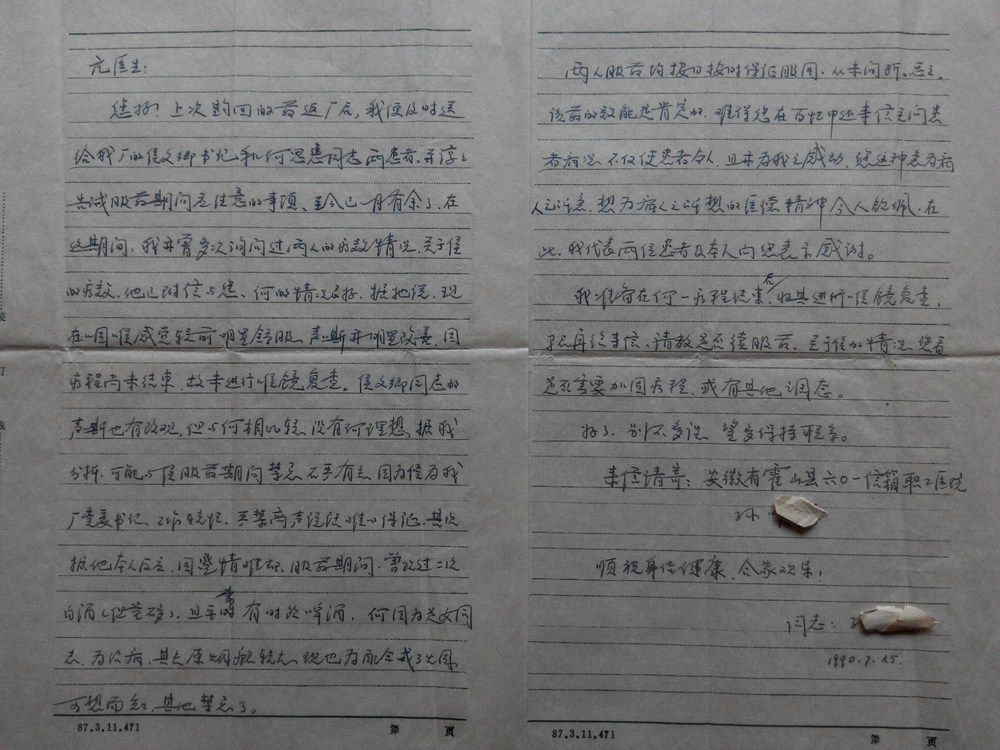 亢医生:
您好!上次购回的药返厂后,我便及时送
给我厂的侯文卿书记和何思惠同志两患者,并谆之
告诫服药期间应注意的事项,至今已一月有余了,在
这期间,我亦曾多次询问过两人的疗效情况,关于侯
的疗效,他已附信与您,何的情况尚好,据她信,现
在咽喉感觉较前明显舒服,声嘶亦明显改善,因
疗程尚未结束,故未进行喉镜复查。侯文卿同志的
声嘶也有改观,但与何相比较,没有何理想,据我
分析,可能与侯服药期间禁忌不严有关,因为侯为我
厂党委书记,工作较忙,要禁高声说话难以保证,其次
据他本人反应,因盛情难却,服药期间,曾饮过二次
白酒,且平时有时饮啤酒,何因为是女同
志,为治病,其夫原烟瘾较大,现也为配合戒了烟,
可想而知,其他禁忌了。
87.3.11.471
第 页
两人服药均按日按时保证服用,从未间断。总之,
该药的效能是肯定的,难得您在百忙中还来信询问患
者病况,不仅使患者人,且亦为我之感动,您这种急为病
人之所急,想为病人之所想的医德精神令人钦佩,在
此,我代表两位患者及本人向您表示感谢。
我准备在何一疗程结束后,将其进行一侯镜复查,
再给来信,请教是否续服药,至于侯的情况,您看
是否需要加固疗程,或有其他调态。
好了,别不多说,望多保持联系。
来信请寄:安徽省霍山县六0一信箱职工医院
孙
顺祝身体健康,合家欢乐!
同志:孙
1990.7.25.
87.3.11.471
第 页